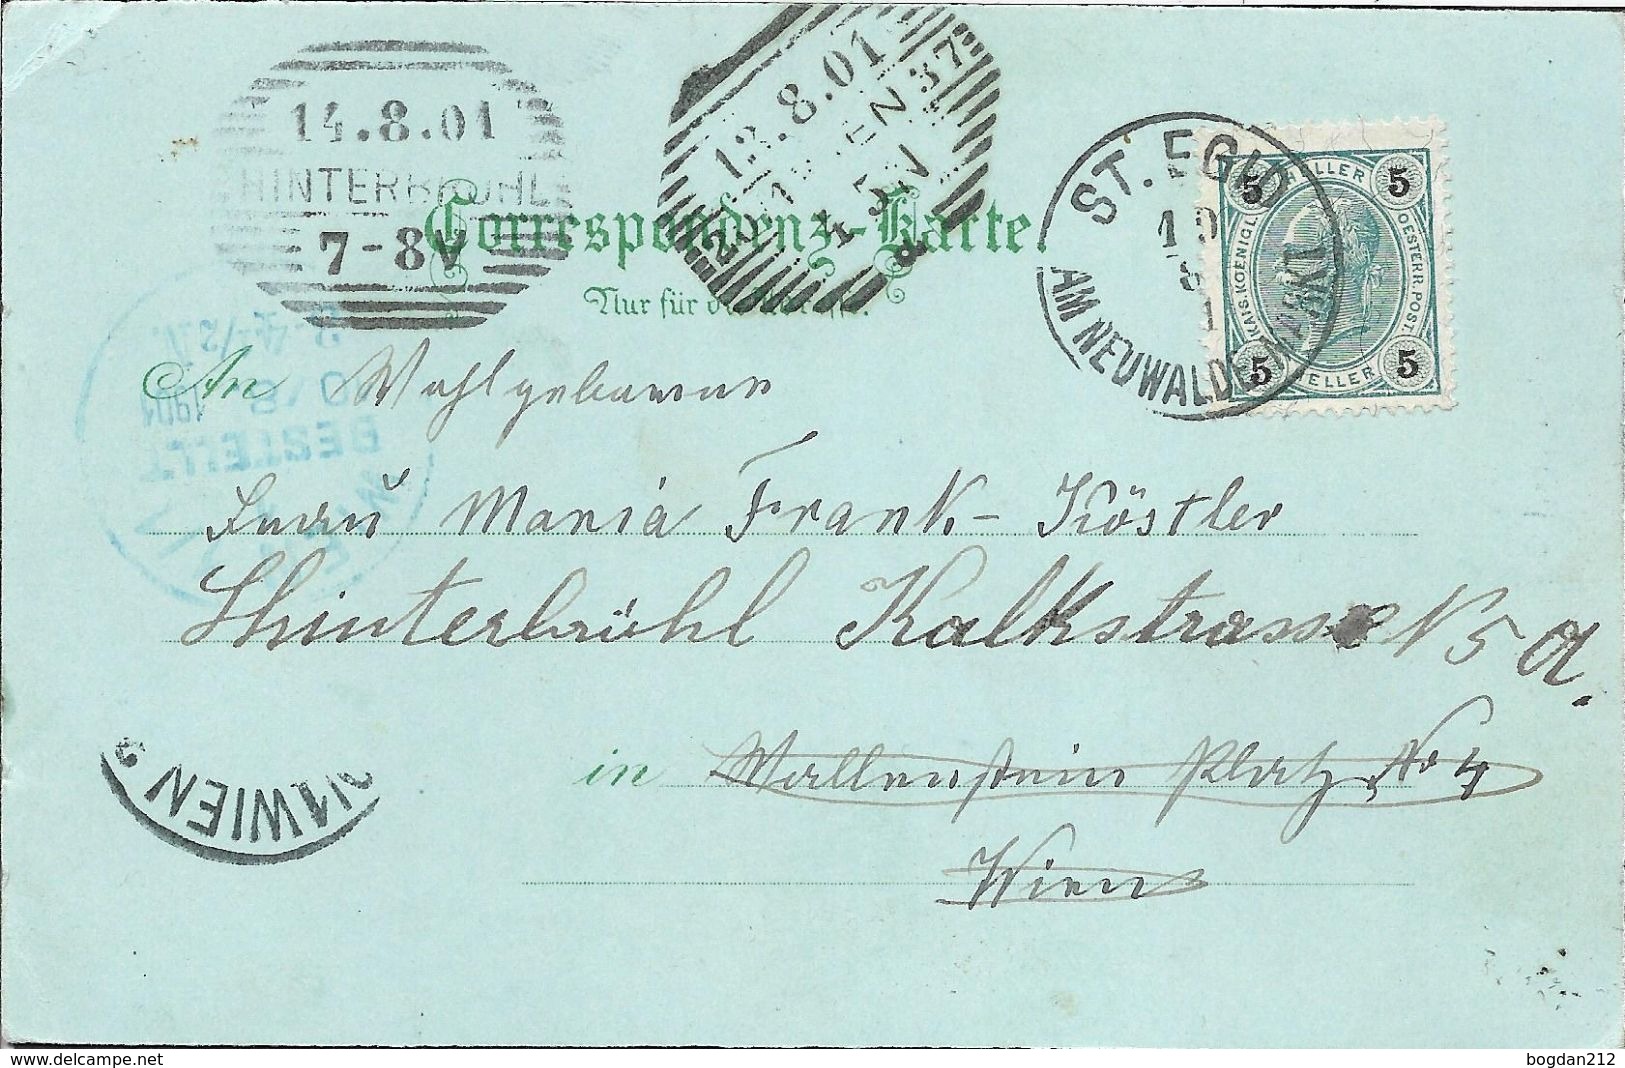 14.8.01
HINTERBRÜHL
7-8V
13.8.01
WIEN 37
ST. EGYD
AM NEUWALDE
HELLER
5 5
KAIS. KOENIGL. OESTERR. POST.
5 5
HELLER
Correspondenz-Karte.
Nur für die
An Wohlgeboren
BESTELLT
WIEN
Frau Maria Frank-Köstler
Hinterbrühl Kalkstrasse N 5 a.
in Wallenstein Platz No 4
Wien
1 WIEN
delcampe.net
bogdan212